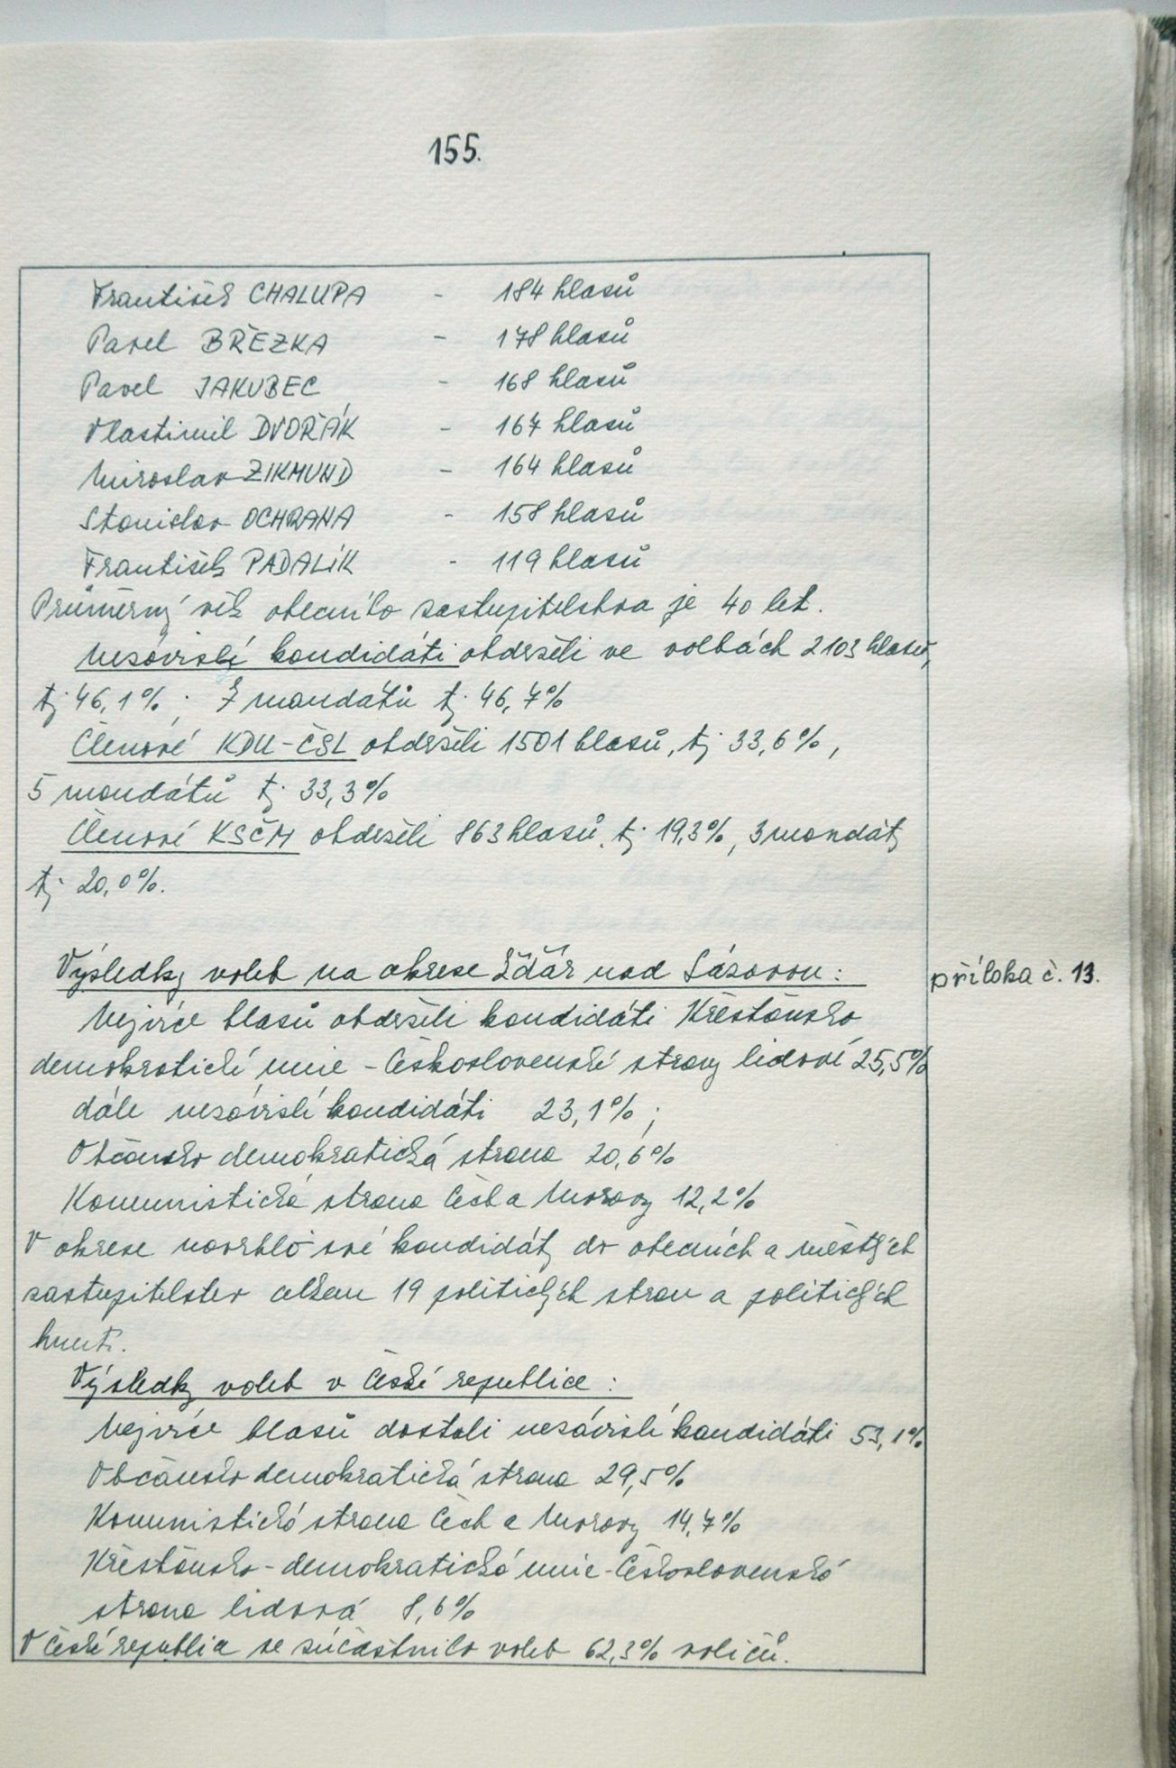 155.
František CHALUPA - 184 hlasů
Pavel BŘEZKA - 178 hlasů
Pavel JAKUBEC - 168 hlasů
Vlastimil DVOŘÁK - 167 hlasů
Miroslav ZIKMUND - 164 hlasů
Stanislav OCHRANA - 158 hlasů
František PADALÍK - 119 hlasů
Průměrný věk obecního zastupitelstva je 40 let.
Nezávislí kandidáti obdrželi ve volbách 2103 hlasů,
tj. 46,1%; 7 mandátů tj. 46,7%
Členové KDU-ČSL obdrželi 1501 hlasů, tj 33,6%,
5 mandátů tj. 33,3%
Členové KSČM obdrželi 863 hlasů, tj 19,3%, 3 mandáty
tj. 20,0%.
Výsledky voleb na okrese Žďár nad Sázavou:
příloha č. 13.
Nejvíce hlasů obdrželi kandidáti Křesťansko
demokratické unie - Československé strany lidové 25,5%
dále nezávislí kandidáti 23,1%;
Občansko demokratická strana 20,6%
Komunistická strana Čech a Moravy 12,2%
V okrese navrhlo své kandidáty do obecních a městských
zastupitelstev celkem 19 politických stran a politických
hnutí.
Výsledky voleb v České republice:
Nejvíce hlasů dostali nezávislí kandidáti 53,1%
Občansko demokratická strana 29,5%
Komunistická strana Čech a Moravy 14,7%
Křesťansko-demokratická unie-Československá
strana lidová 8,6%
V České republice se zúčastnilo voleb 62,3% voličů.